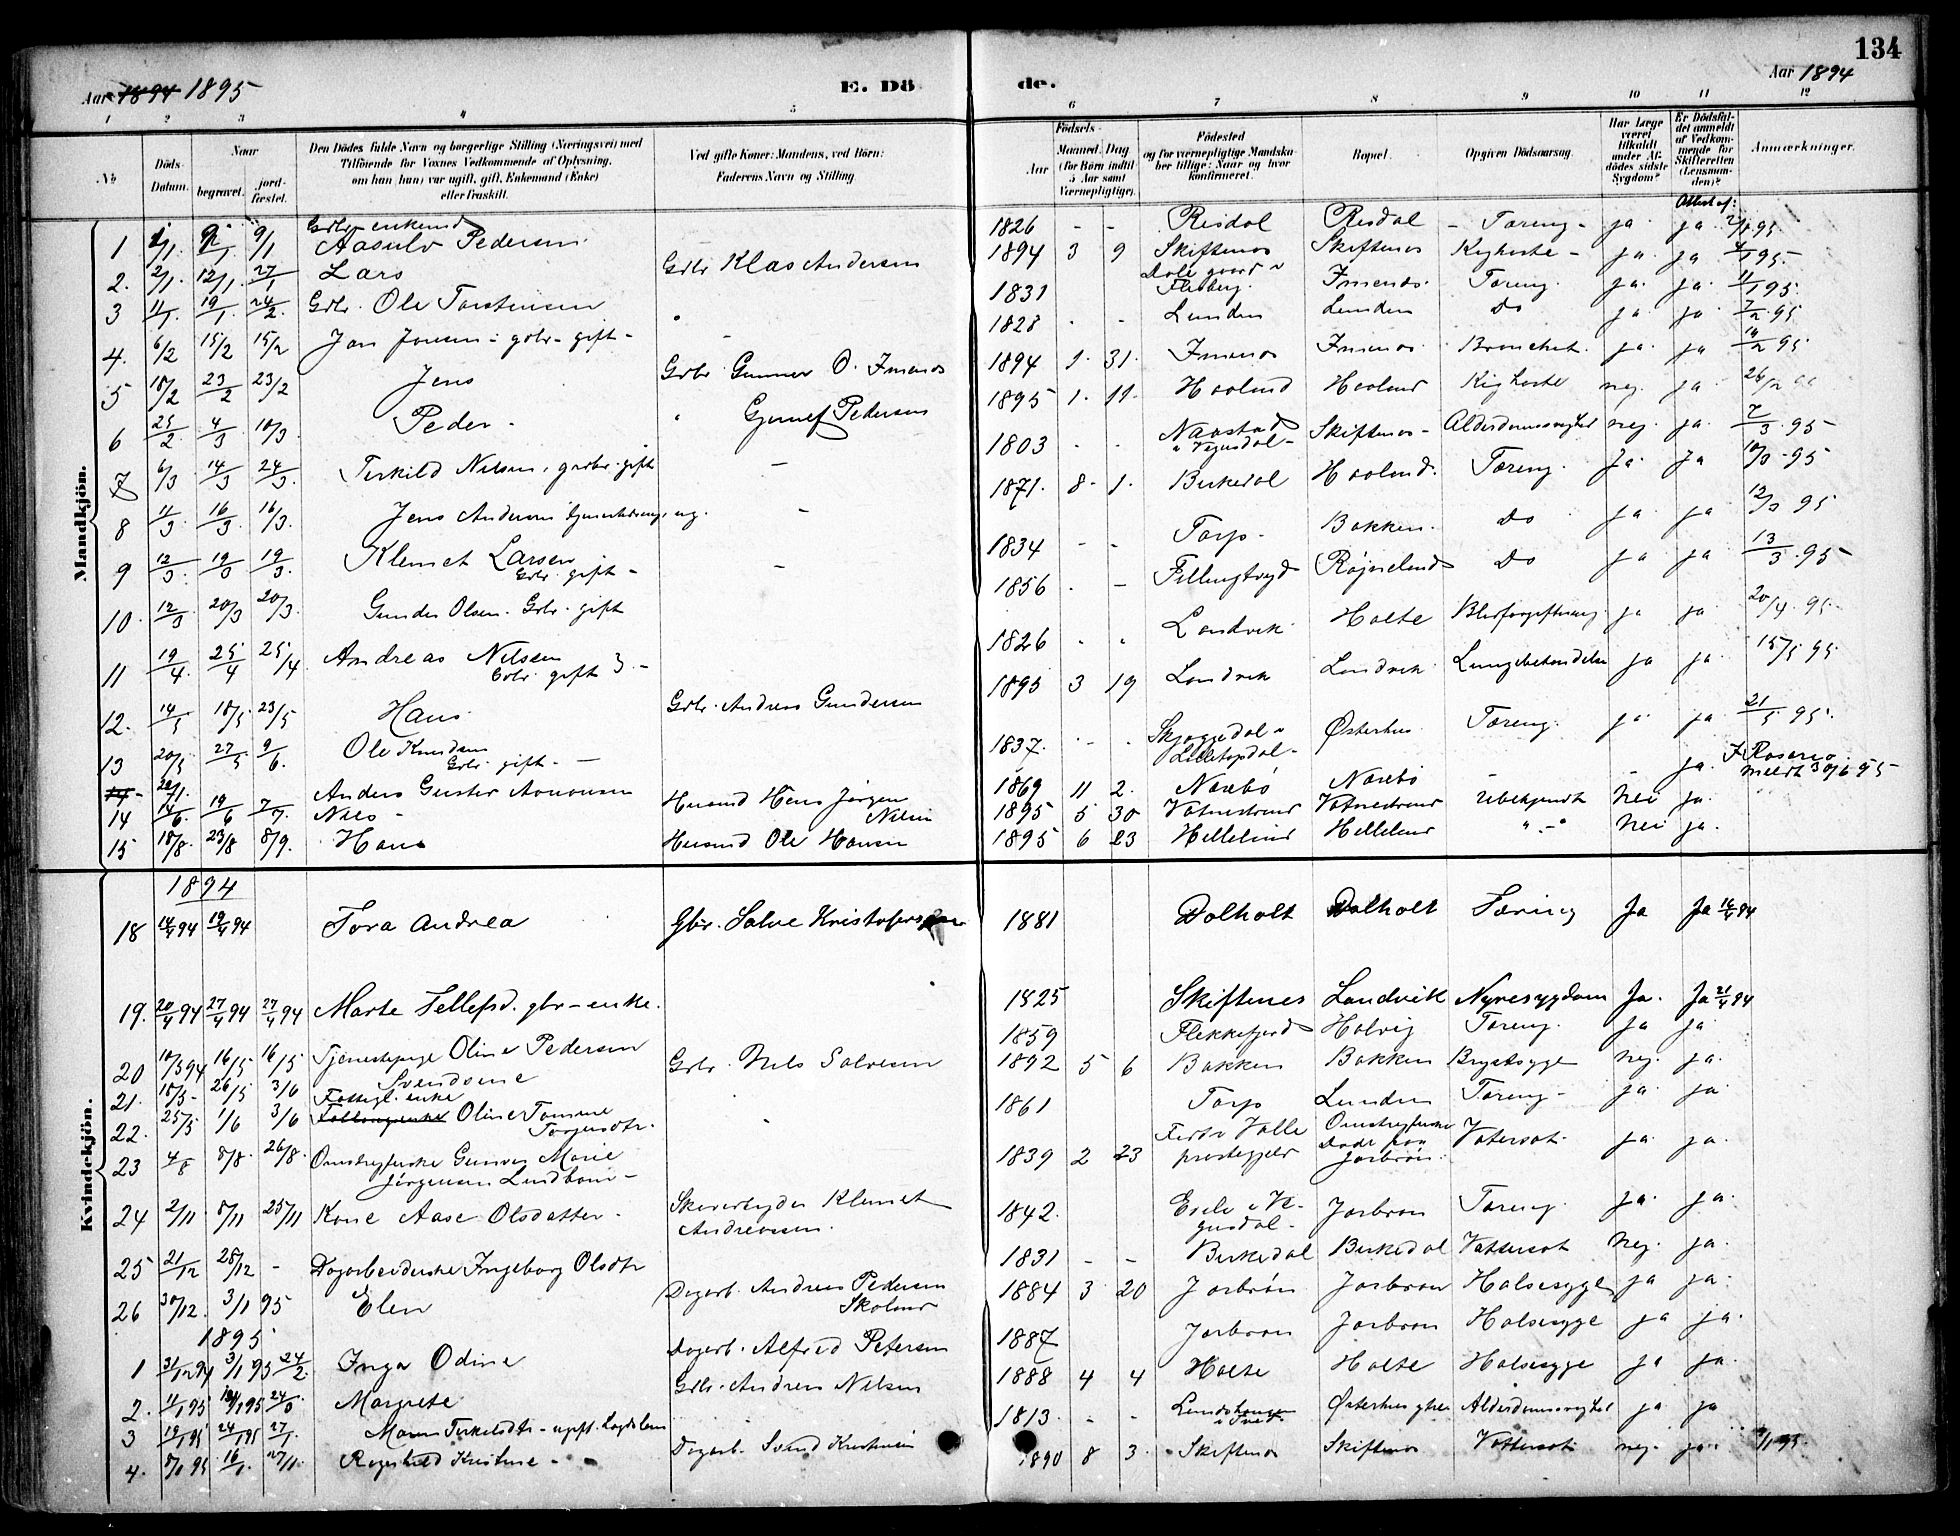 134
Aar 1894 1895
E. Dö
de.
Aar 1894
1 2 3 4 5 6 7 8 9 10 11 12
No
Döds-Datum.
Naar
begravet. jord-fæstet.
Den Dödes fulde Navn og borgerlige Stilling (Næringsvei) med
Tilföiende for Voxnes Vedkommende af Oplysning,
om han (hun) var ugift, gift, Enkemand (Enke)
eller fraskilt.
Ved gifte Koner: Mandens, ved Börn:
Faderens Navn og Stilling.
Födsels-
Aar Maaned. Dag
(for Börn indtil
5 Aar samt
Værnepligtige).
Födested
og for værnepligtige Mandska-
ber tillige: Naar og hvor
konfirmeret.
Bopæl.
Opgiven Dödsaarsag.
Har Læge
været
tilkaldt
under Af-
dödes sidste
Sygdom?
Er Dödsfal-
det anmeldt
af Vedkom-
mende for
Skifteretten
(Lensman-
den)?
Anmærkninger.
Attest af:
Mandkjön.
1 2/1 9/1 9/1 Grbr. enkemd Aasulv Pedersen 1826 - - Risdal Risdal Tæring ja ja 2/1 95
2. 2/1 12/1 27/1 Lars Grbr Klas Andersen 1894 3 9 Skiftenes Skiftenes Kighoste ja ja 4/1 95
3 11/1 19/1 24/2 Grbr. Ole Torstensen 1831 Dale gaard i Flesberg. Imenes Tæring. ja ja 11/1 95
4. 6/2 15/2 15/2 Jon Jonsen grbr. gift 1828 - - Lunden Lunden Do ja ja 7/2 95
5 18/2 23/2 23/2 Jens Grbr Gunner O. Imenes 1894 1 31. Imenes Imenes Bronchit. ja ja 19/2 95
6 25/2 4/3 10/3 Peder Gjeruf Pedersen 1895 1 11 Haaland Haaland Kighoste nej ja 26/2 95
7 6/3 14/3 24/3 Terkild Nilsen, gaardbr. gift 1803 - - Naastad i Vegusdal Skiftenes Alderdomssvaghet nej ja 7/3 95
8 11/3 16/3 16/3. Jens Andersen ug. 1871. 8 1. Birkedal Haaland. Tæring. Ja Ja 10/3 95
9 12/3 19/3 19/3. Klemet Larsen Grbr. gift 1834 - - Torp. Bakken. Do ja ja 12/3 95
10. 12/3 20/3 20/3. Gunder Olsen. Grbr. gift 1856 - - Røjneland Do ja ja 13/3 95
11 19/4 25/4 25/4 Andreas Nilsen Grbr. gift 1826 - - Landvik Holte Blodforgiftning ja ja 20/4 95
12. 14/5 18/5 23/5 Hans Grbr. Andreas Gundersen 1895 3 19 Landvik Landvik Lungebetændelse ja ja 15/5 95
13 20/5 27/5 9/6 Ole Knudsen Grbr. gift 1837. - - Skjeggedal i Østerhus Tæring. ja ja 21/5 95.
14 20/1. Anders Gustav Aanonsen 1869 11 2. Næsbø Næsbø ja. meldt 30/6 95
14 14/6. 19/6 7/7. Nils Husmd Hans Jørgen Nilsen 1895 5 30 Vatnestrand Vatnestrand Ubekjendt Nei ja.
15 18/8. 23/8 8/9. Hans Husmd Ole Hansen 1895 6 23 Helleland Helleland " - " Nei ja.
Kvindekjön.
1894
18 14/4 94 19/4 94 Tora Andrea Gbr. Salve Kristofersen 1881 Dalholt Dalholt Tæring Ja Ja 16/4 94
19. 20/4 94 27/4 94 27/4 94 Marte Tellefsd. gbr-enke. 1825 Skiftenes Landvik Nyresygdom Ja. Ja 21/4 94
20 10/5 94 16/5 16/5 Tjenestepige Oline Pedersen 1859 Flekkefjord Holvig Tæring. ja ja
21. 18/5 26/5 3/6 Svendsine Grbr. Nils Salvesen 1892 5 6 Bakken Bakken Brystsyge nej. ja.
22. 25/5 1/6 3/6 Fattigl. enke Oline Tomine Torjersdtr. 1861 Torp Lunden Tæring ja ja
23 4/8 8/8. 26/8. Omstreiferske Gunvor Marie Jørgensen Lindbom 1839 2 23 Valle prestegjeld Omstreiferske Døde paa Jorbrøn. Vatersot. ja. ja.
24 2/11 8/11 25/11 Kone Aase Olsdatter Klemet Andreassen. 1842. Vegusdal. Jorbrøn Tæring. ja. ja.
25 21/12 28/12 - Dagarbeiderske Ingeborg Olsdtr 1831 - - Birkedal Birkedal Vattersot nej. ja.
26 30/12. 3/1 95 Elen Dagarb. Andreas Pedersen 1884 3 20 Jorbrøn Jorbrøn Halssyge ja ja.
1895
1 31/12 94 3/1 95 24/2. Inga Odine Dagarb. Alfred Petersen 1887 Jorbrøn Jorbrøn Halssyge ja ja.
2. 11/1 95 19/1 95 Margrete Grbr. Andreas Nilsen 1888 4 4 Holte Holte Halssyge ja ja.
3 19/1 95 24/1 95 27/1. Maren Terkelsdtr. 1813. - - Alderdomssvaghet ja ja
4. 8/1 95 16/1. 27/1. Ragnhild Kristine Dagarb. Svend Kristensen 1890 8 3. Skiftenes Skiftenes Vattersot nej. ja. 9/1 95.